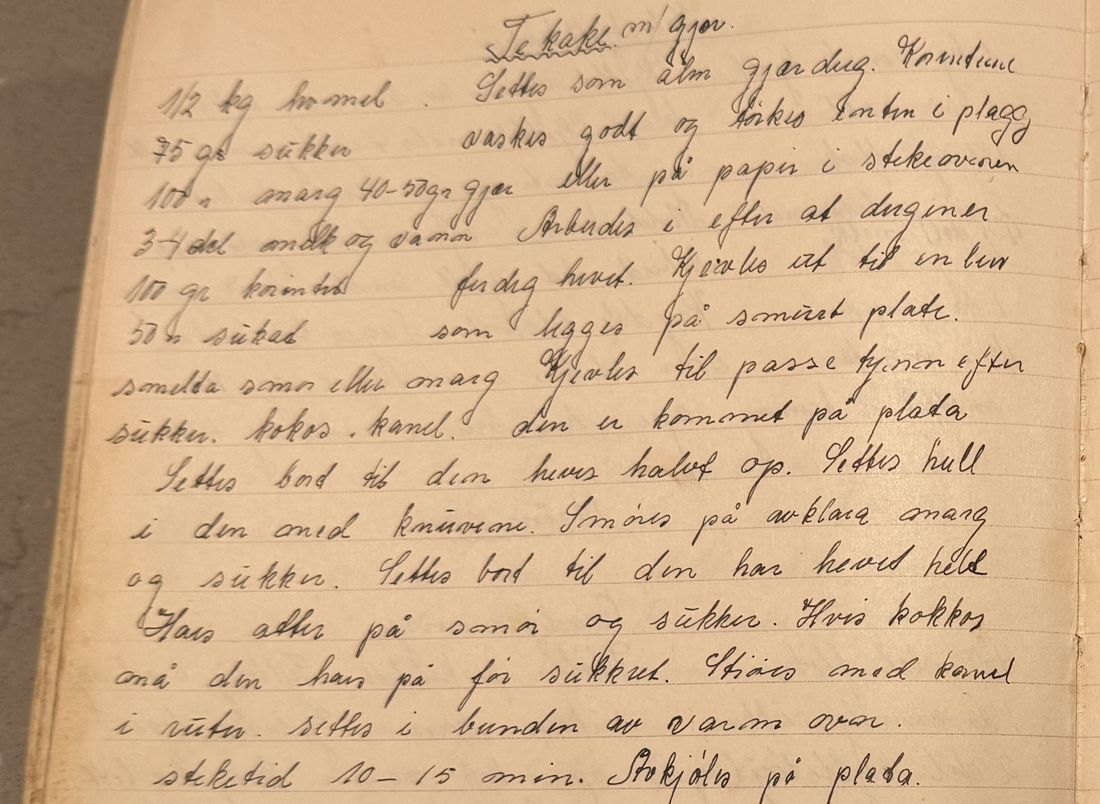 Tekake m/gjær.
1/2 kg hvomel . Settes som alm gjærdeig. Korintene
75 gr sukker vaskes godt og tørkes enten i plagg
100 " marg 40-50gr gjær eller på papir i stekeovenen
3-4 del melk og vann Arbeides i efter at deigen er
100 gr korinter ferdig hevet. Kjevles ut til en leiv
50 " sukat som legges på smurt plate.
smelta smør eller marg Kjevles til passe tynn efter
sukker. kokos . kanel. den er kommet på plata
Settes bort til den heves halvt op. Settes hull
i den med knivene. Smøres på avklara marg
og sukker. Settes bort til den har hevet helt
Haes atter på smør og sukker. Hvis kokkos
må den haes på før sukkret. Strøes med kanel
i ruter. settes i bunden av varm ovn.
steketid 10-15 min. Avkjøles på plata.